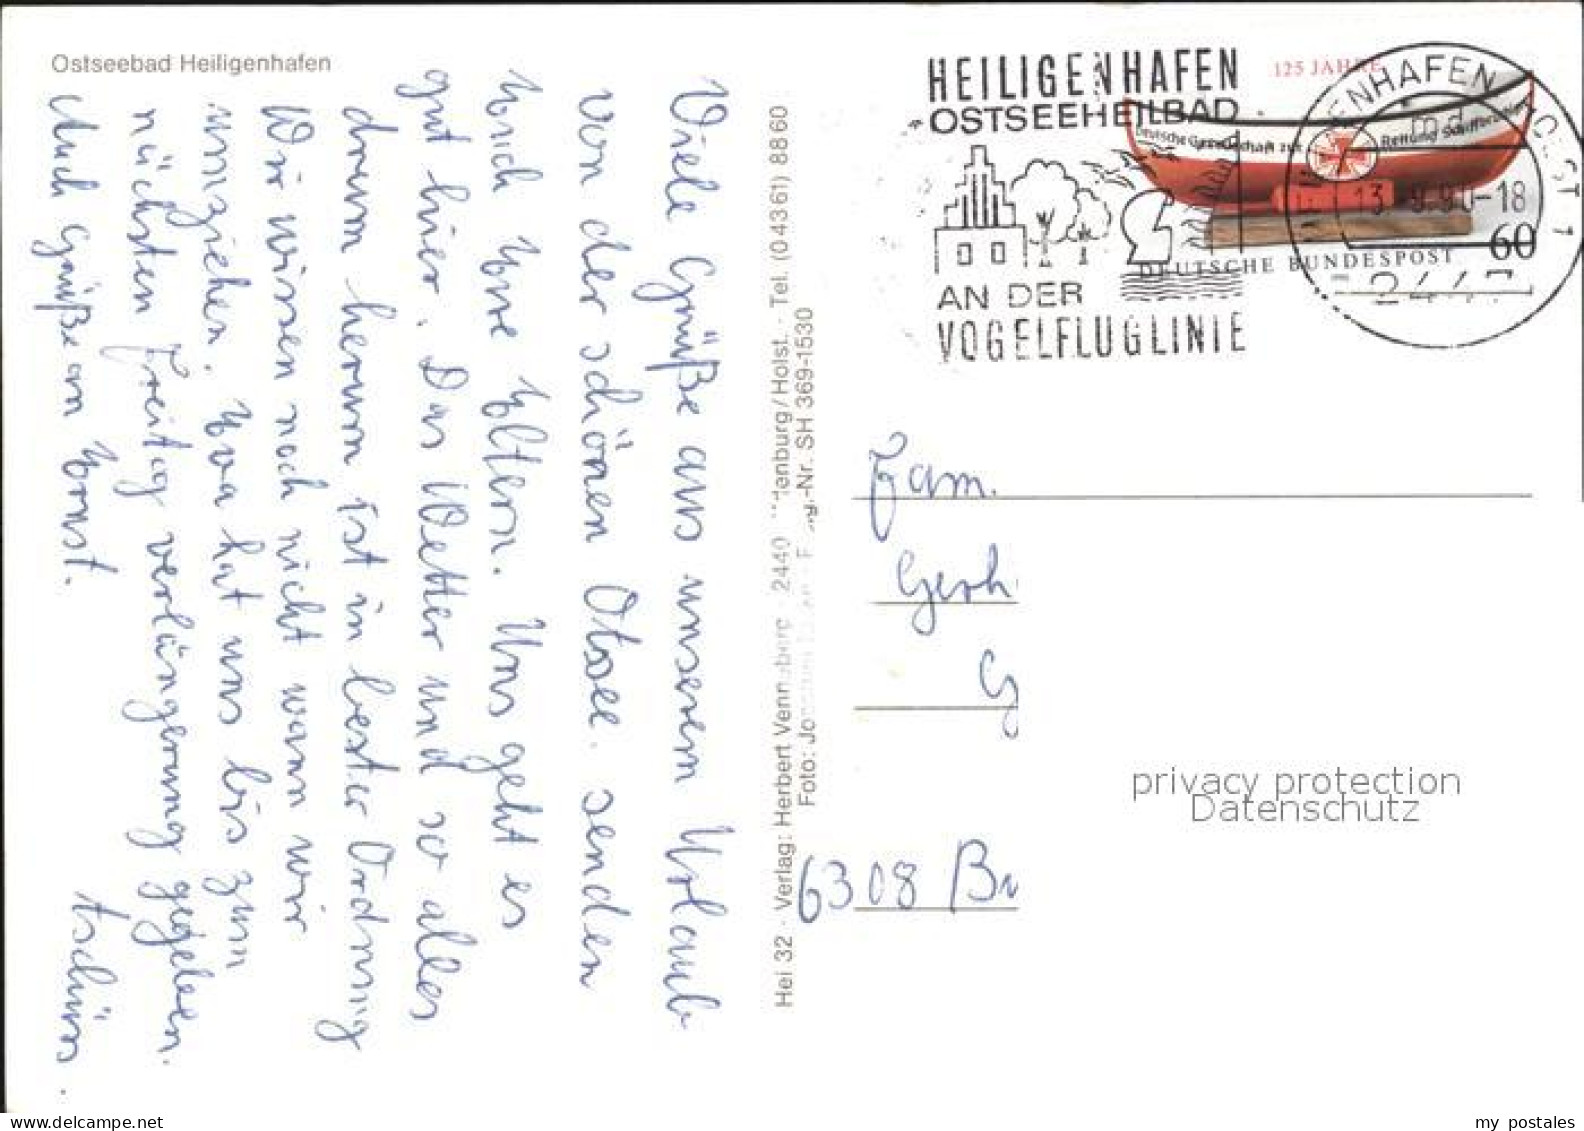 Ostseebad Heiligenhafen
Viele Grüße aus unserem Urlaub
von der schönen Otsee. senden
Euch Eure Eltern. Uns geht es
gut hier. Das Wetter und so alles
drum herum ist in bester Ordnung
Wir wissen noch nicht wann wir
umziehen. Eva hat uns bis zum
nächsten Freitag verlängerung gegeben.
Auch Grüße an Ernst.
tschüss.
Hei 32 · Verlag: Herbert 2440 Tel. (04361) 8860
Foto: SH 369-1530
HEILIGENHAFEN
OSTSEEHEILBAD
AN DER
VOGELFLUGLINIE
125 JAHRE
Deutsche Gesellschaft zur Rettung Schiffbrüchiger
DEUTSCHE BUNDESPOST
60
13. 9.90-18
Fam.
Gerh
G
6308 Bu
privacy protection
Datenschutz
my postales